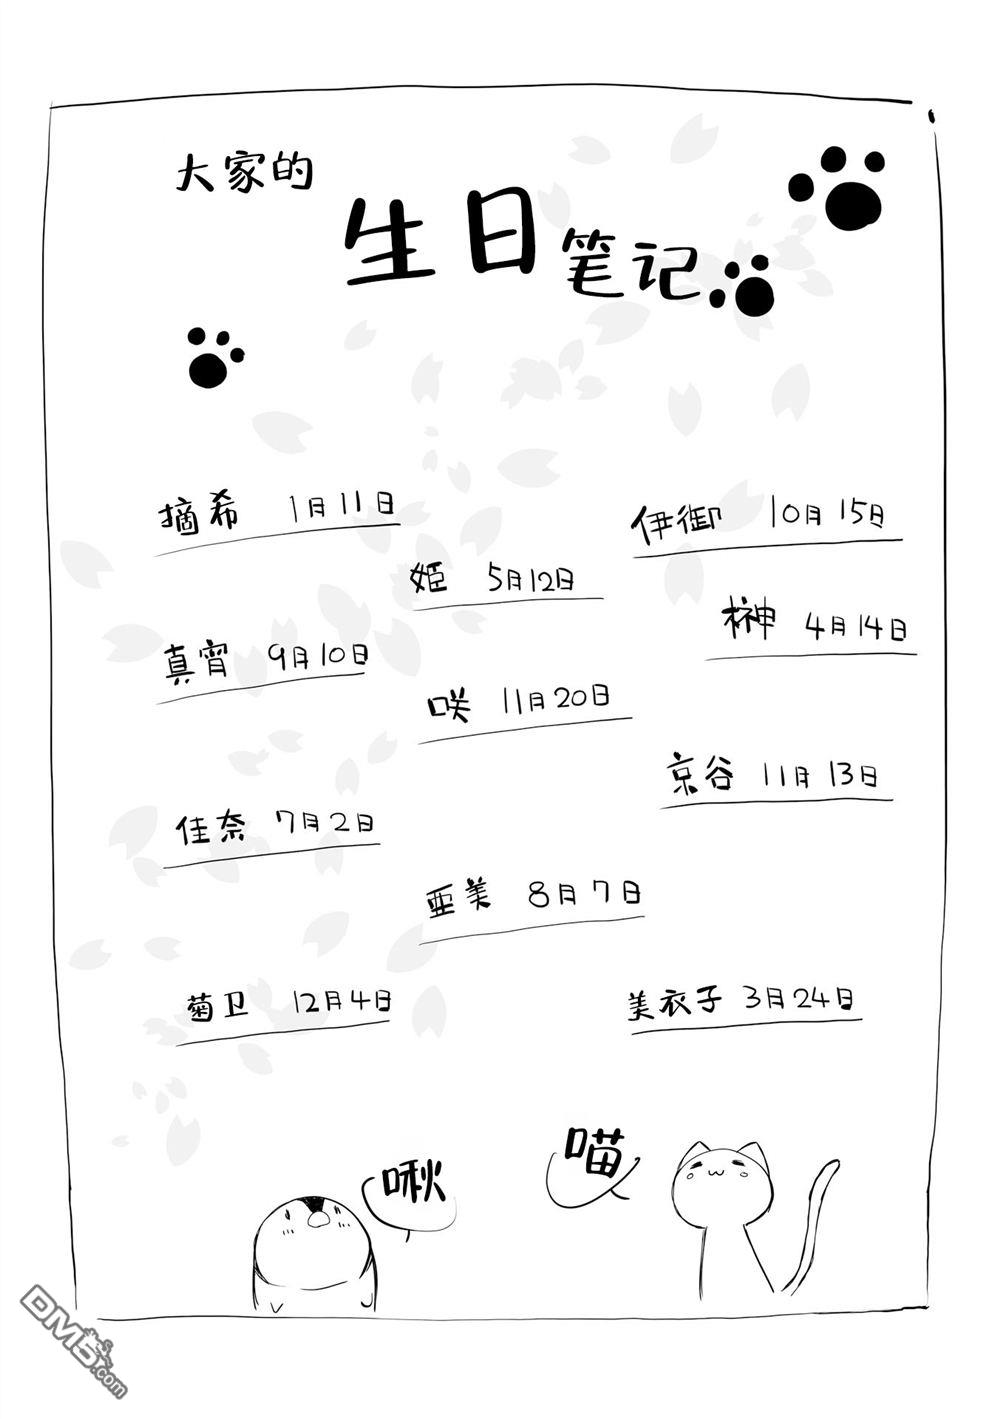 大家的
生日笔记
摘希 1月11日
伊御 10月15日
姫 5月12日
榊 4月14日
真宵 9月10日
咲 11月20日
京谷 11月13日
佳奈 7月2日
亜美 8月7日
菊卫 12月4日
美衣子 3月24日
啾
喵
DM5.com